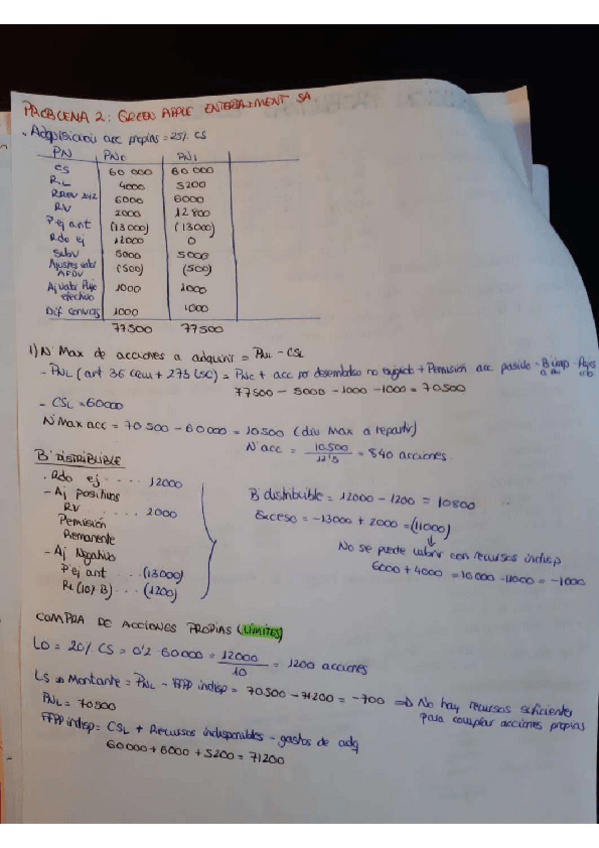 PROBLEMA 2: GREEN APPLE ENTERTAINMENT SA
- Adquisición acc propias = 25% CS
PN PNc PN1
CS 60 000 60 000
RL 4000 5200
RRev 2012 6000 6000
RV 2000 12 800
Rej ant (13000) (13000)
Rdo ej 12000 0
Subv 5000 5000
Ajustes valor AFDV (500) (500)
Aj valor flujo efectivo 1000 1000
Dif convers 1000 1000
77500 77500
1) Nº Max de acciones a adquirir = PNL - CSL
- PNL (art 36 Ccom + 273 LSC) = PNc + acc por desembolso no exigido + Pemisión acc pasivo - B imp - Ajes
77500 - 5000 - 1000 - 1000 = 70500
- CSL = 60000
Nº Max acc = 70 500 - 60000 = 10500 (div Max a repartir)
Nº acc = 10.500 / 12'5 = 840 acciones
Bº DISTRIBUIBLE
. Rdo ej .... 12000
- Aj positivos
RV ..... 2000
Pemisión
Remanente
- Aj Negativo
Rej ant ... (13000)
RL (10% B) ... (1200)
Bº distribuible = 12000 - 1200 = 10800
Exceso = -13000 + 2000 = (11000)
No se puede cubrir con recursos indisp
6000 + 4000 = 10 000 - 11000 = -1000
COMPRA DE ACCIONES PROPIAS (LÍMITES)
LO = 20% CS = 0'2 · 60000 = 12000 / 10 = 1200 acciones
LS = Montante = PNL - FFPP indisp = 70500 - 71200 = -700 ⇒ No hay recursos suficientes
para comprar acciones propias
PNL = 70500
FFPP indisp = CSL + Recursos indisponibles - gastos de adq
60000 + 6000 + 5200 = 71200